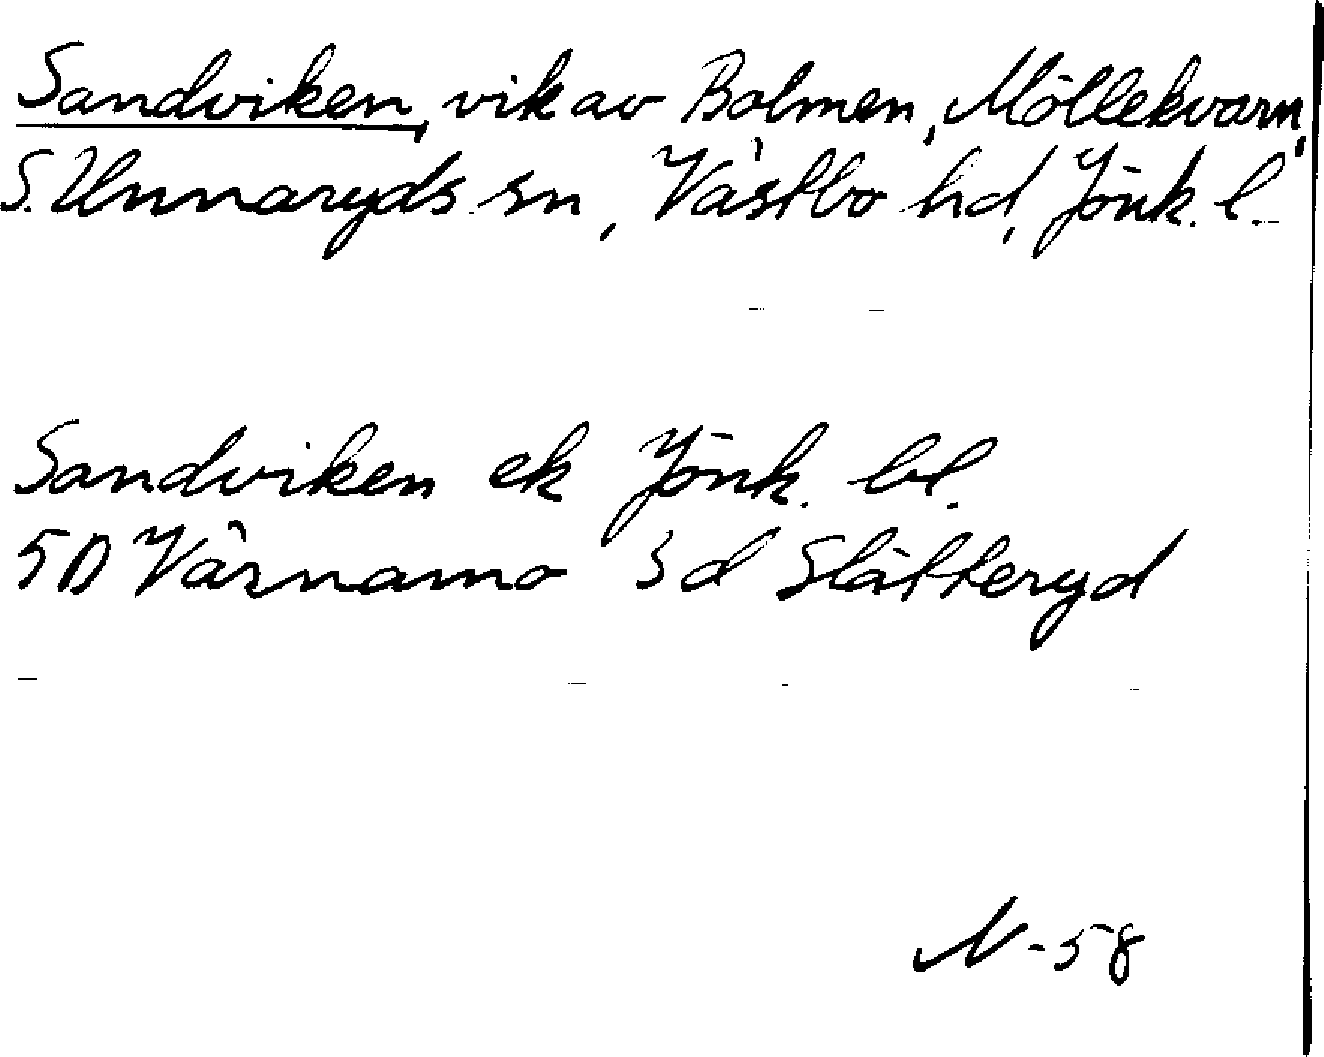 Sandviken, vik av Bolmen, Möllekvarn,
S. Unnaryds sn, Västbo hd, Jönk. l.
Sandviken ek Jönk. bl.
5D Värnamo 3d Slätteryd
N-58